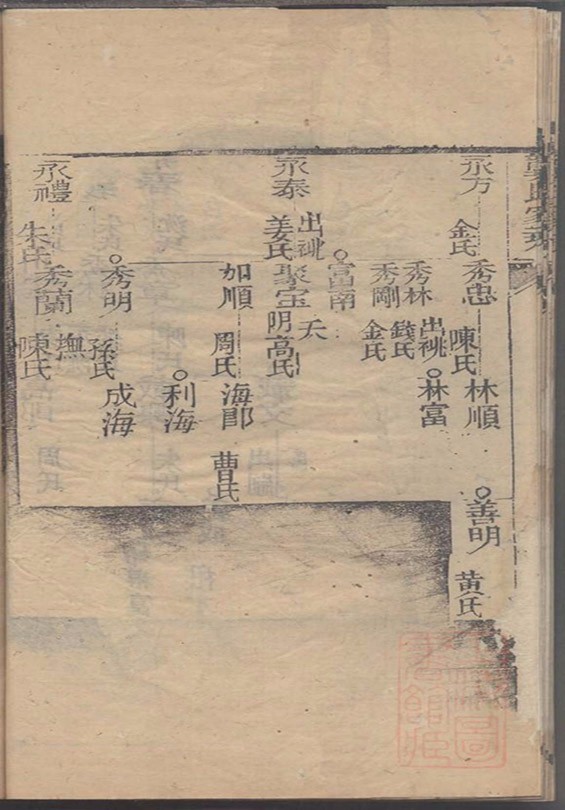 永方
金氏
秀忠
陳氏
林順
善明
黄氏
秀林
錢氏
出祧
林富
秀剛
金氏
富南
永泰
出祧
姜氏
聚宝
夭
阴高氏
如順
周氏
海郎
曹氏
利海
秀明
孫氏
成海
永禮
朱氏
秀蘭
撫
陳氏